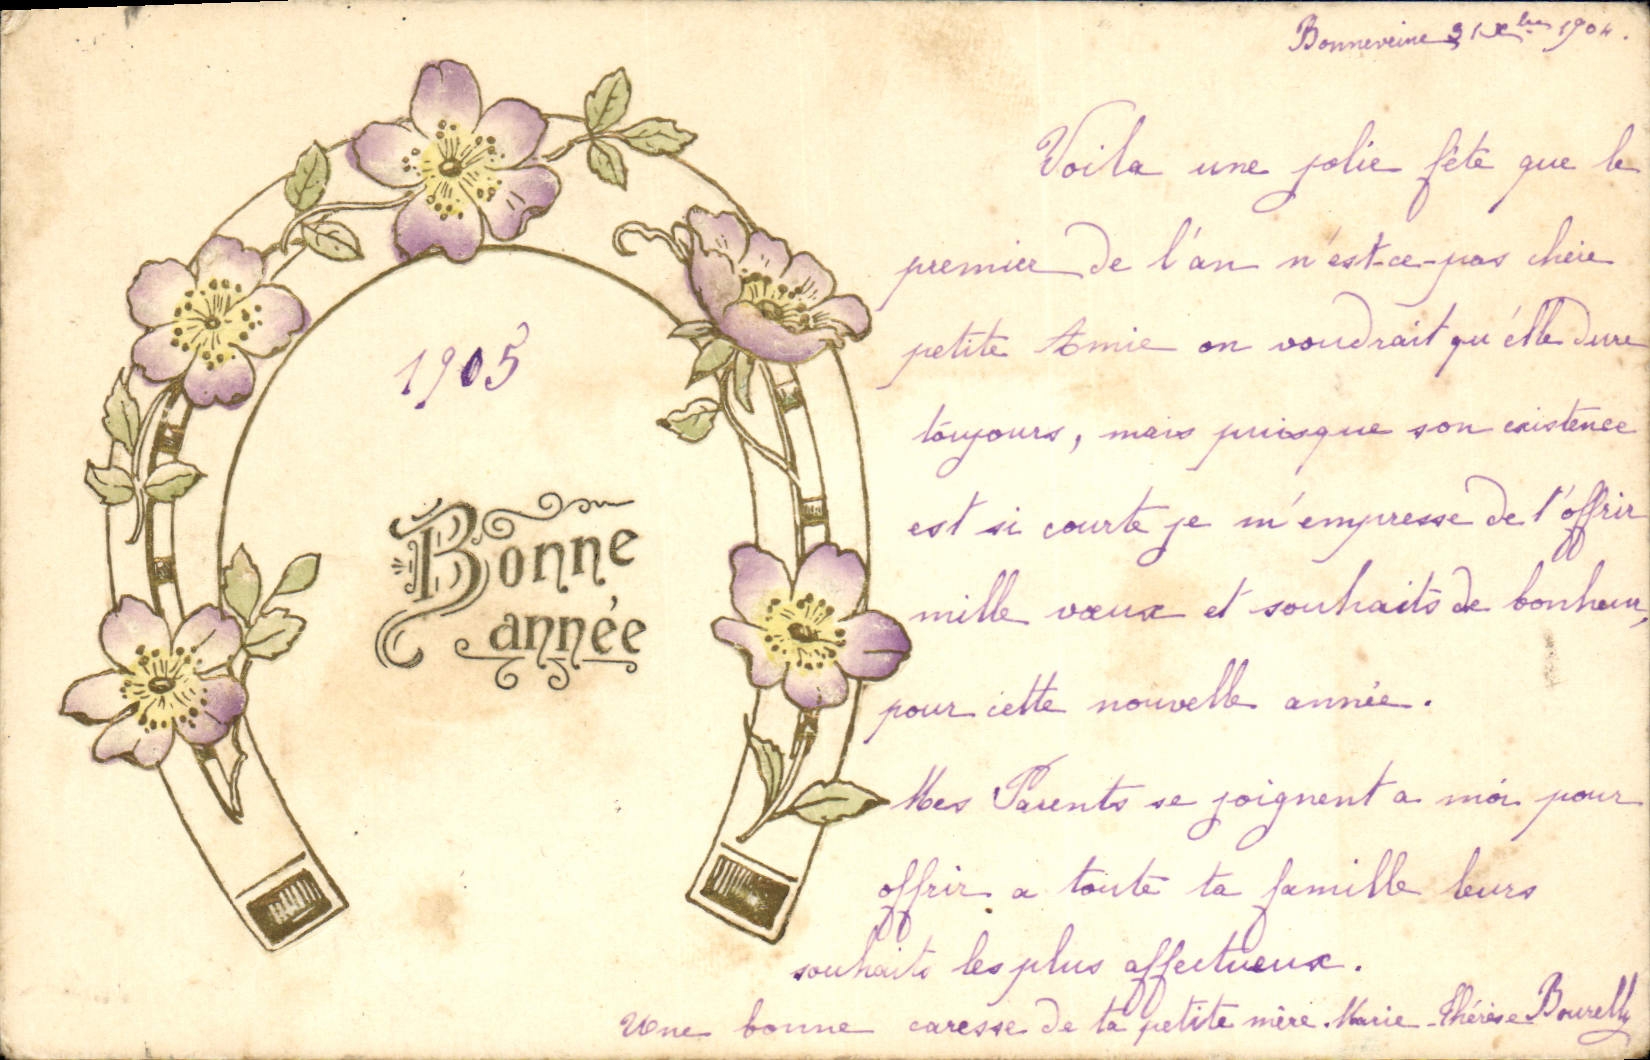 Bonneveine 31 Xbre 1904.
Voila une jolie fête que le
premier de l'an n'est-ce-pas chère
petite Amie on voudrait qu'elle dure
toujours, mais puisque son existence
est si courte je m'empresse de t'offrir
mille vœux et souhaits de bonheur,
pour cette nouvelle année.
Mes Parents se joignent a moi pour
offrir a toute ta famille leurs
souhaits les plus affectueux.
Une bonne caresse de ta petite mère. Marie-Thérèse Bourelly
1905
Bonne
année